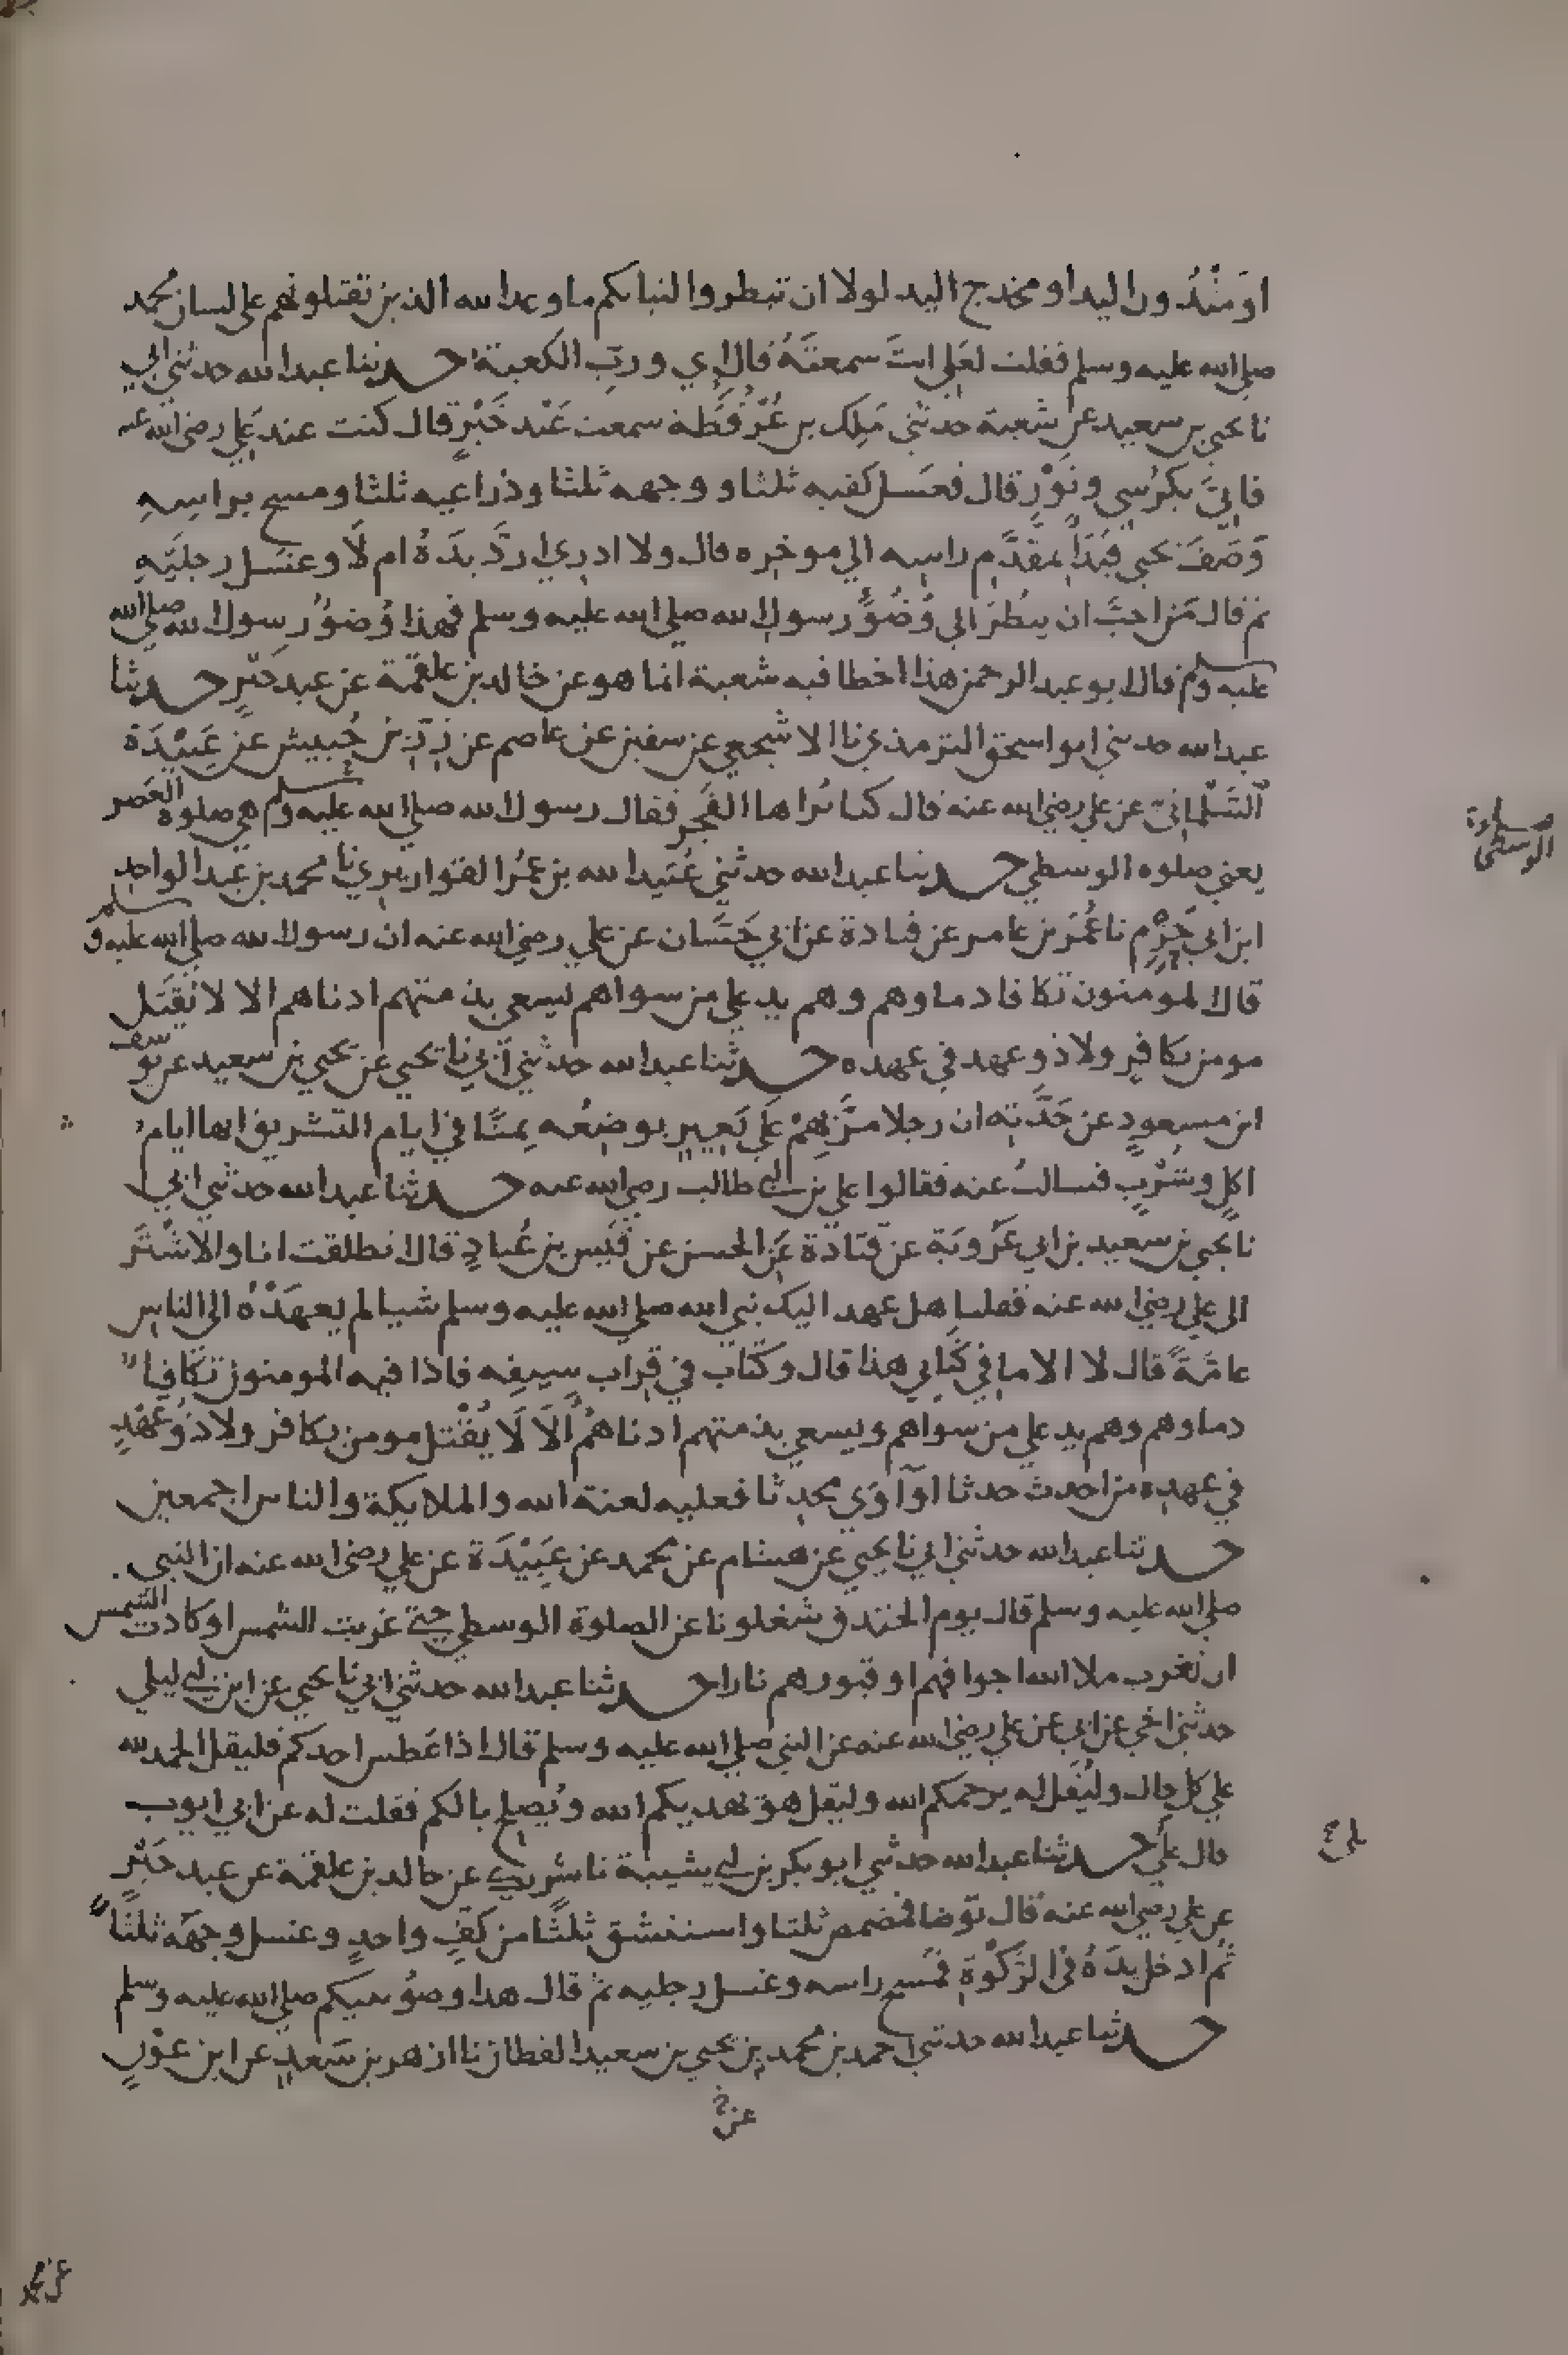 او مَثْدُون اليد او مخدج اليد لولا ان تبطروا لنباتكم ما وعد الله الذين تقتلونهم على لسان محمد
صلى الله عليه وسلم فقلت لعَلِي انتَ سمعتَهُ قال اِي وربِ الكعبة حدثنا عبد الله حدثني ابي
نا يحيى بن سعيد عن شعبة حدثني مَلِك بن عُرْفُطَة سمعت عَبْد خَيْرٍ قال كنت عند عَلِي رضي الله عنه
فاُتِيَ بكُرْسِي وتَوْرٍ قال فغسل كفيه ثلثا ووجهه ثلثا وذراعيه ثلثا ومسح براسِهِ
وَصَفَ يحيى فبَدَأَ بمُقَدَّمِ راسه الي موخره قال ولا ادرِي ارَدَّ يدَهُ ام لَا وغسَل رجلَيْهِ
ثم قال مَن احبَّ ان ينظُرَ الى وُضُوْءِ رسول الله صلى الله عليه وسلم فهذا وُضوُْ رسول الله صلى الله
عليه وسلم قال ابو عبد الرحمن هذا اخطا فيه شعبة انما هو عن خالد بن علقمة عن عبد خَيْرٍ حدثنا
عبد الله حدثني ابو اسحق الترمذي نا الاشجعي عن سفين عن عاصم عن زِرِّ بن حُبيش عن عَبِيْدَة
السَّلْمانِيِّ عن علي رضي الله عنه قال كنا نُراها الفَجر فقال رسول الله صلى الله عليه وسلم هي صلوة العَصر
يعني صلوه الوسطي حدثنا عبد الله حدثني عُبَيد الله بن عُمَر القواريرِي نا محمد بن عَبد الواحِد
ابن ابي حَزْمٍ نا عُمَرُ بن عامر عن قتادة عن ابي حَسَّان عن علي رضي الله عنه ان رسول الله صلى الله عليه وسلم
قال المومنون تكافا دماوهم وهم يد علي من سواهم يسعى بذمتهم ادناهم الا لا يُقتَل
مومن بكافرٍ ولا ذو عهد في عهده حدثنا عبد الله حدثني اَبي نا يحيى عن يحيى بن سعيد عن يوسف
ابن مسعودٍ عن جَدَّتِه ان رجلا مرَّ بهمْ عَلَي بَعِيرٍ يوضِعُه بِمِنًا في ايام التشريق انها ايام
اكلٍ وشُرْبٍ فسالتُ عنه فقالوا علي بن ابي طالب رضي الله عنه حدثنا عبد الله حدثني ابي
نا يحيى بن سعيد بن ابي عَرُوبَة عن قَتَادَة عَنِ الحسن عن قَيْس بن عُبادٍ قال انطلقت انا والاشْتَر
الى علي رضي الله عنه فقلنا هل عهد اليك نبي الله صلى الله عليه وسلم شيا لم يعهَدْهُ الى الناس
عامَّةً قال لا الا ما في كِتَابي هذا قال وكِتَاب في قِرَاب سيفِه فاذا فيه المومنون تَكَافا
دماوهم وهم يد علي من سواهم ويسعي بذمتهم ادناهُم اَلَا لَا يُقْتل مومن بكافر ولا ذوُ عَهْدٍ
في عهدِه من احدث حدثا او آوَى محدِثا فعليه لعنة الله والملايكة والناس اجمعين
حدثنا عبد الله حدثني ابي نا يحيى عن هشام عن محمد عن عَبِيْدَة عن علي رضى الله عنه ان النبي
صلى الله عليه وسلم قال يوم الخندق شغلونا عن الصلوة الوسطي حتى غربت الشمس او كادت الشمس
ان تغرب ملا الله اجوافهم او قبورهم نارا حدثنا عبد الله حدثني ابي نا يحيى عن ابن ابي ليلي
حدثني اخي عن ابي عن علي رضي الله عنه عن النبي صلى الله عليه وسلم قال اذا عَطس احدكم فليقل الحمد لله
علي كل حال وليُقَل له يرحمكم الله وليقل هو يهديكم الله ويُصلح بالكم فقلت له عن ابي ايوب
قال عَلِي حدثنا عبد الله حدثني ابو بكر بن ابي شيبة نا شَرِيك عن خالد بن علقمة عن عبد خَيْر
عن علي رضي الله عنه قال توضا فمضمض ثلثا واستنشق ثلثًا من كَفٍّ واحدٍ وغسل وجهَه ثلثًا
ثُم ادخل يدَهُ في الرَّكْوَةِ فمسح راسه وغسل رجليه ثم قال هذا وضوُ نبيكم صلى الله عليه وسلم
حدثنا عبد الله حدثني احمد بن محمد بن يحيى بن سعيد القطان نا ازهر بن سَعدٍ عن ابن عَوْنٍ
عن
صلوة
الوسطى
على